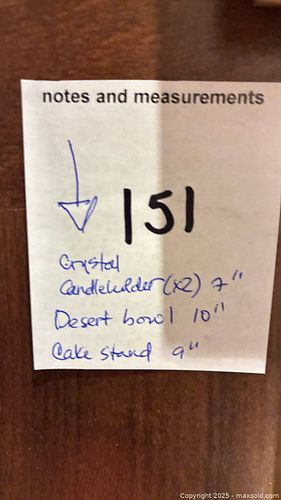 notes and measurements
151
Crystal
Candleholder (x2) 7"
Desert bowl 10"
Cake stand 9"
Copyright 2025 - maxsold.com